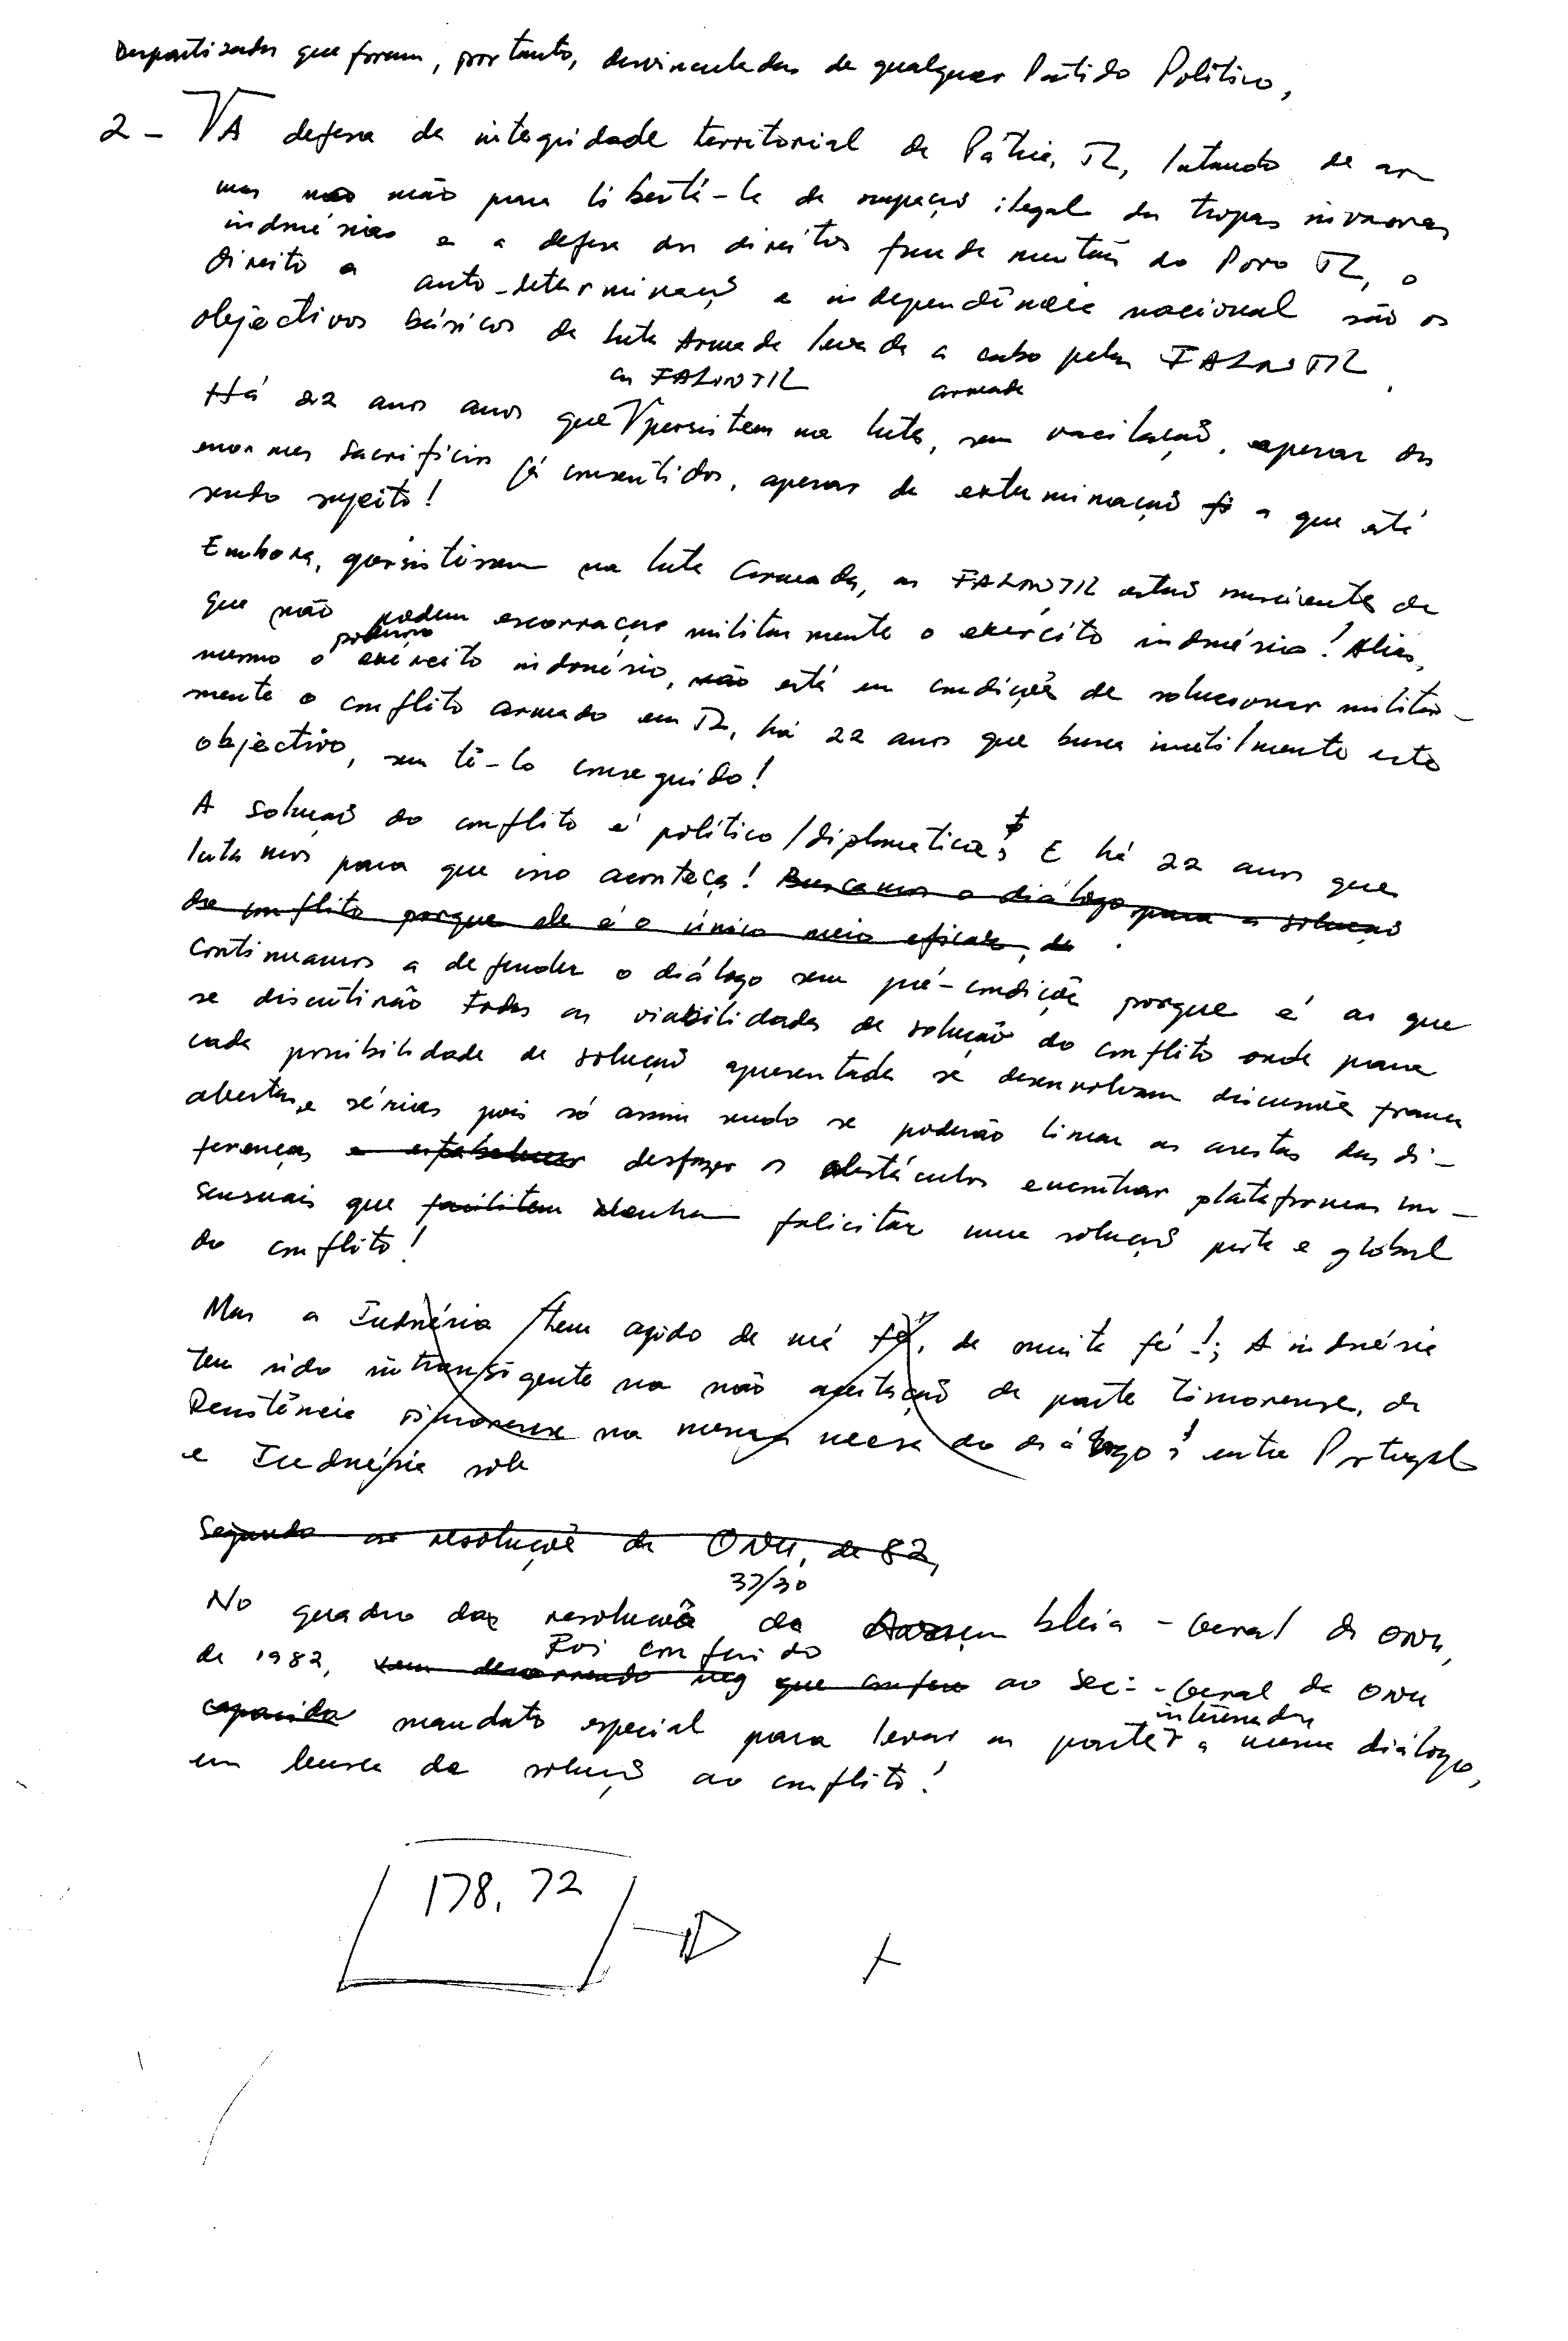 Despartizadas que foram, portanto, desvinculadas de qualquer Partido Político,
2 - A defesa da integridade territorial da Pátria, TL, lutando de ar
mas na mão para libertá-la da ocupação ilegal das tropas invasoras
indonésias e a defesa dos direitos fundamentais do Povo TL, o
direito a auto-determinação e independência nacional são os
objectivos básicos da luta Armada levada a cabo pelas FALINTIL.
as FALINTIL armada
Há 22 anos anos que persistem na luta, sem vacilação, apesar dos
enormes sacrifícios já consentidos, apesar da exterminação a que está
sendo sujeito!
Embora, persistissem na luta armada, as FALINTIL estão conscientes de
que não podem escorraçar militarmente o exército indonésio! Aliás,
poderoso
mesmo o exército indonésio, não está em condições de solucionar militar-
mente o conflito armado em TL, há 22 anos que busca inutilmente este
objectivo, sem tê-lo conseguido!
A solução do conflito é político/diplomática! E há 22 anos que
lutamos para que isso aconteça! Buscamos o diálogo para a solução
do conflito porque ele é o único meio eficaz, de
Continuamos a defender o diálogo sem pré-condições porque é aí que
se discutirão todas as viabilidades de solução do conflito onde para
cada possibilidade de solução apresentada se desenvolvam discussões francas
abertas e sérias pois só assim sendo se poderão limar as arestas das di-
ferenças e estabelecer desfazer os obstáculos encontrar plataformas con-
sensuais que facilitem venham felicitar uma solução justa e global
do conflito!
Mas a Indonésia tem agido de má fé, de muita fé!; A indonésia
tem sido intransigente na não aceitação da parte timorense, da
Resistência timorense na mesma mesa do diálogo! entre Portugal
e Indonésia sob
Segundo as resoluções da ONU, de 82,
37/30
No quadro das resoluções da Assembleia-Geral da ONU,
Foi conferido
de 1982, vem decorrendo neg que confere ao Sec:-Geral da ONU
interessadas
capacida mandato especial para levar as partes a mesma diálogo,
em busca da solução ao conflito!
178.72